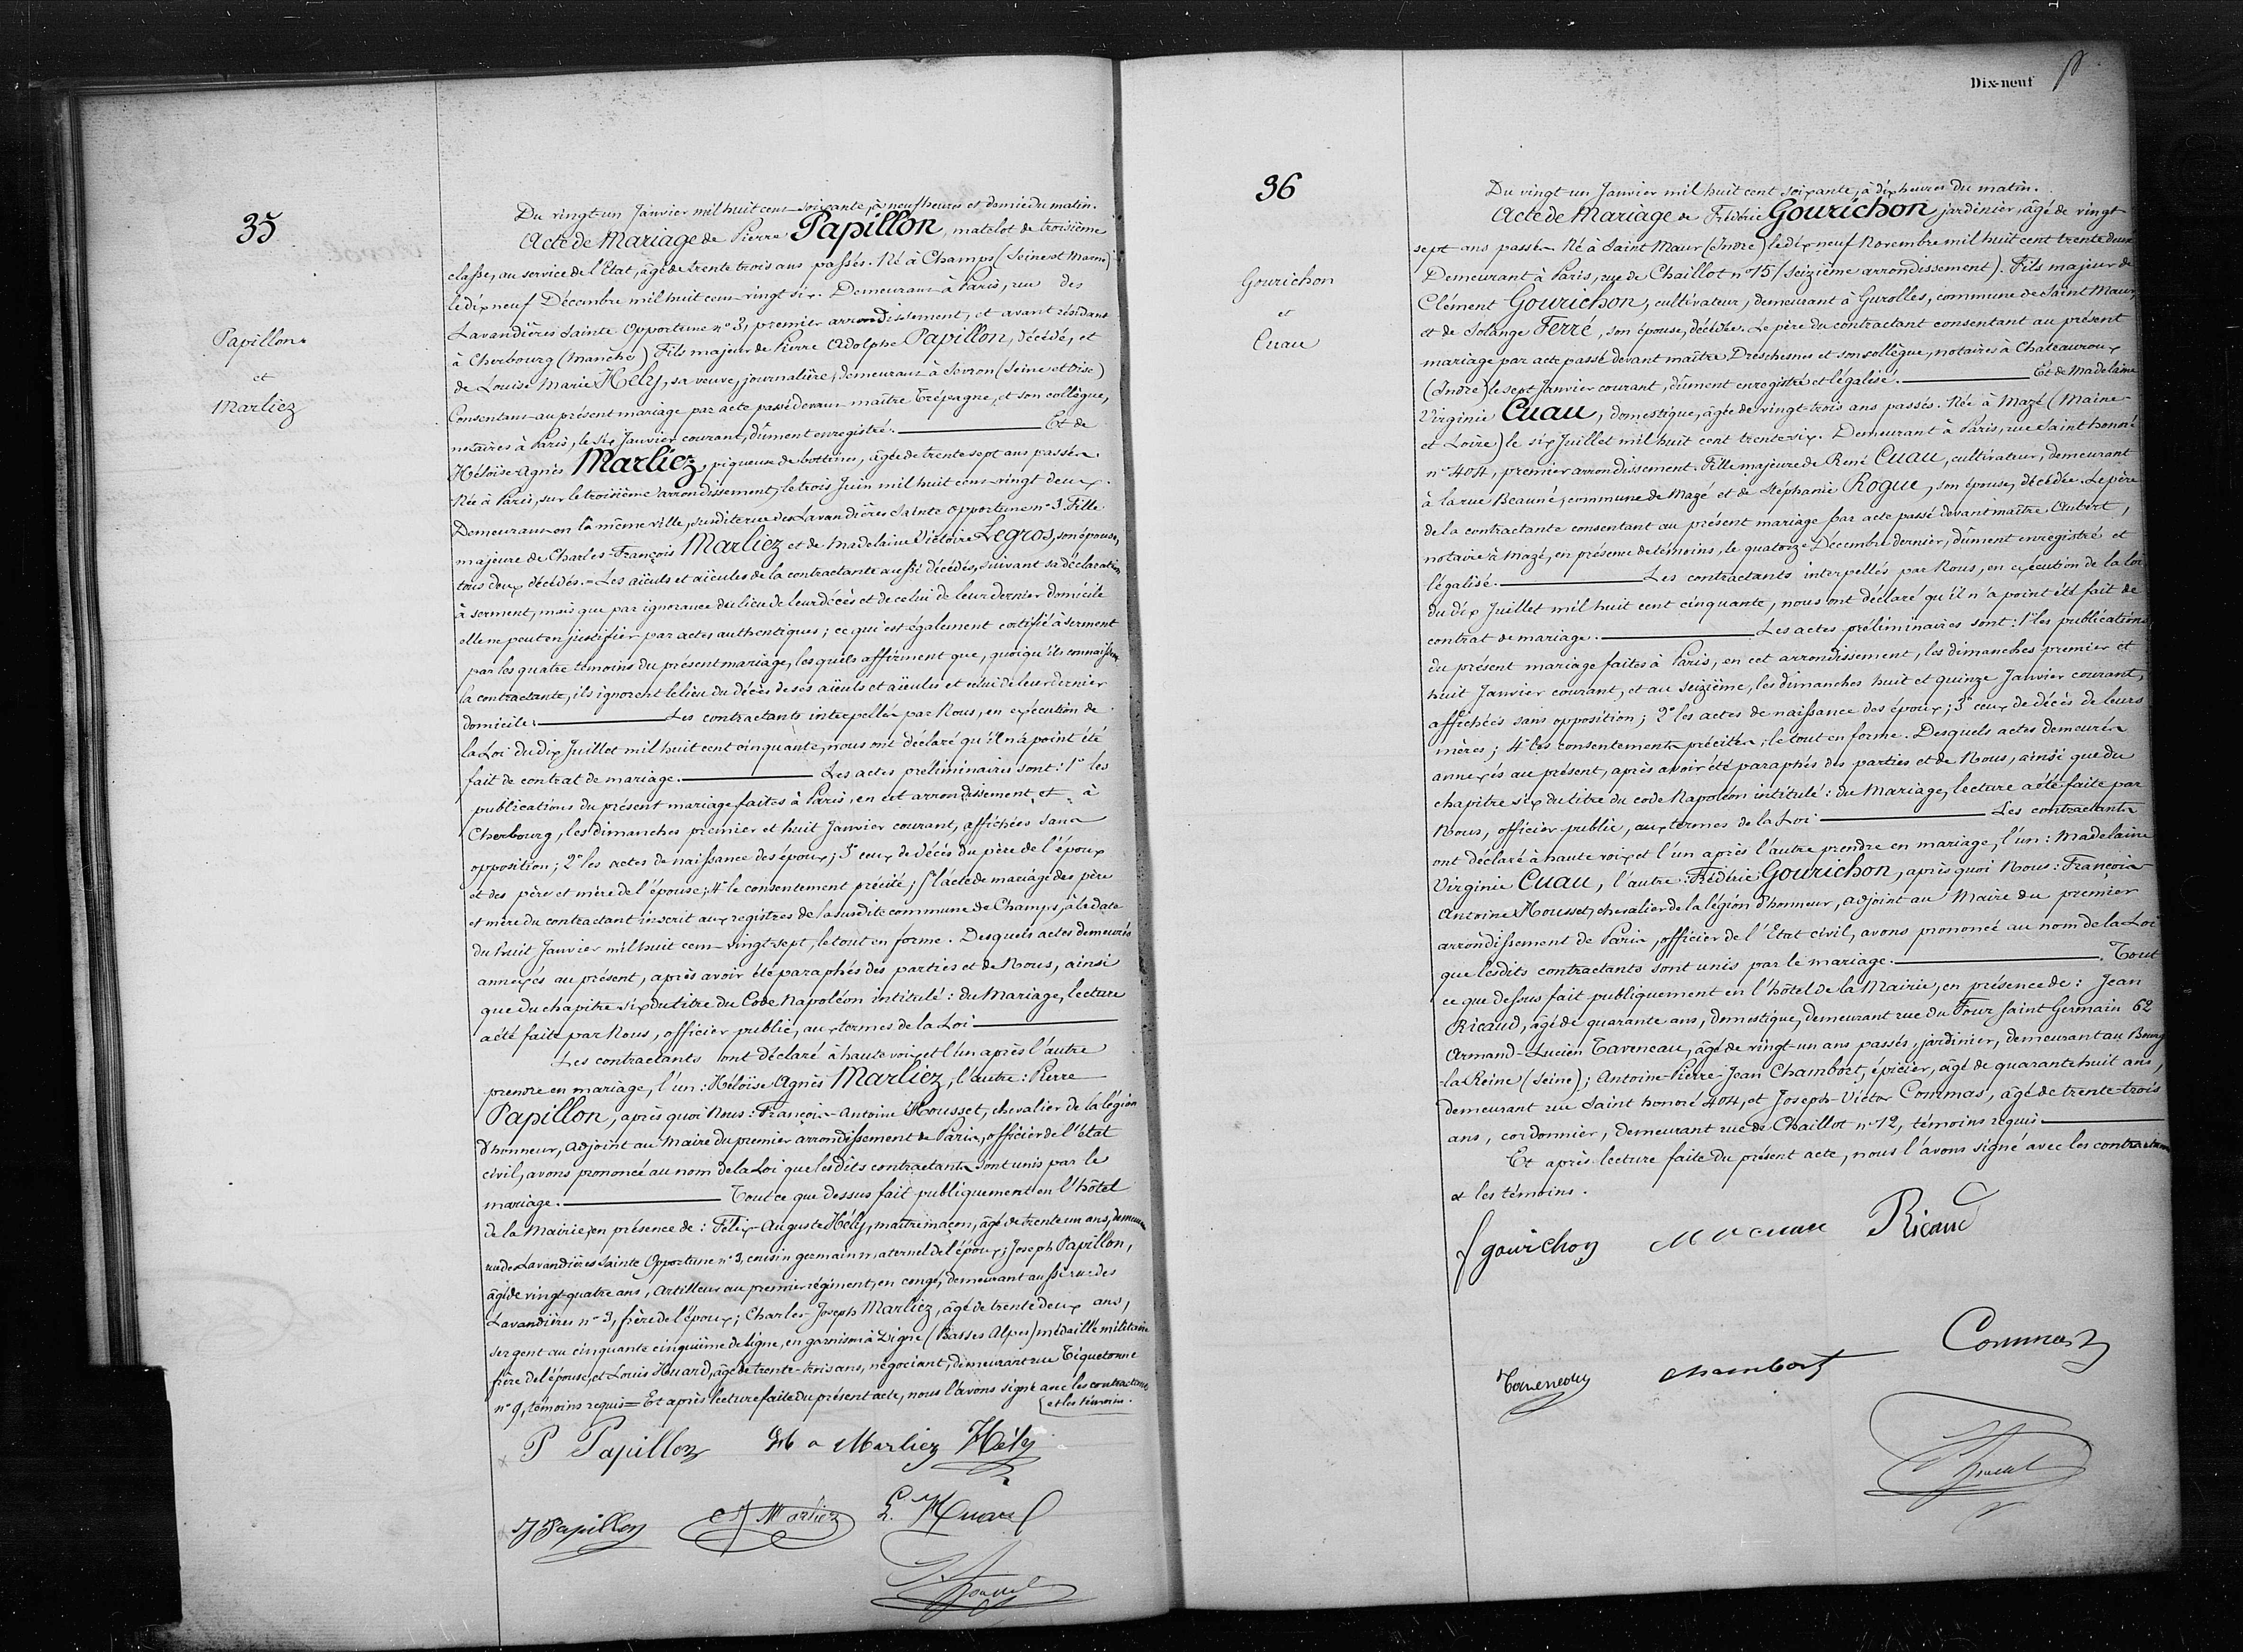 35
Papillon
et
Marliez
Du vingt-un Janvier mil huit cent soixante, à neuf heures et demie du matin.
Acte de Mariage de Pierre Papillon, matelot de troisième
classe, au service de l'Etat, âgé de trente trois ans passés. Né à Champs (Seine et Marne)
le dix neuf Décembre mil huit cent vingt six. Demeurant à Paris, rue des
Lavandières Sainte Opportune n° 3, premier arrondissement, et avant résidant
à Cherbourg (Manche) Fils majeur de Pierre Adolphe Papillon, décédé, et
de Louise Marie Hély, sa veuve, journalière, demeurant à Sevron (Seine et Oise)
Consentant au présent mariage par acte passé devant maître Trépagne, et son collègue,
notaires à Paris, le six Janvier courant, dûment enregistré. Et de
Héloïse Agnès Marliez, piqueuse de bottines, âgée de trente sept ans passés.
Née à Paris, sur le troisième arrondissement, le trois Juin mil huit cent vingt deux.
Demeurant en la même ville, susdite rue des Lavandières Sainte Opportune n° 3. Fille
majeure de Charles-François Marliez et de Madelaine Victoire Legros, son épouse,
tous deux décédés. = Les aïeuls et aïeules de la contractante aussi décédés, suivant sa déclaration
à serment, mais que par ignorance du lieu de leur décès et de celui de leur dernier domicile
elle ne peut en justifier par actes authentiques; ce qui est également certifié à serment
par les quatre témoins du présent mariage, lesquels affirment que, quoiqu'ils connaissent
la contractante, ils ignorent le lieu du décès de ses aïeuls et aïeules et celui de leur dernier
domicile. Les contractants interpellés par Nous, en exécution de
la Loi du dix Juillet mil huit cent cinquante, nous ont déclaré qu'il n'a point été
fait de contrat de mariage. Les actes préliminaires sont: 1° les
publications du présent mariage faites à Paris, en cet arrondissement, et à
Cherbourg, les dimanches premier et huit Janvier courant, affichées sans
opposition; 2° les actes de naissance des époux; 3° ceux de décès du père de l'époux
et des père et mère de l'épouse; 4° le consentement précité; 5° l'acte de mariage des père
et mère du contractant inscrit aux registres de la susdite commune de Champs, à la date
du huit Janvier mil huit cent vingt sept, le tout en forme. Desquels actes demeurés
annexés au présent, après avoir été paraphés des parties et de Nous, ainsi
que du chapitre six du titre du Code Napoléon intitulé: du Mariage, lecture
a été faite par Nous, officier public, aux termes de la Loi
Les contractants ont déclaré à haute voix et l'un après l'autre
prendre en mariage, l'un: Héloïse Agnès Marliez, l'autre: Pierre
Papillon, après quoi Nous: François-Antoine Housset, chevalier de la légion
d'honneur, adjoint au Maire du premier arrondissement de Paris, officier de l'état
civil, avons prononcé au nom de la Loi que lesdits contractants sont unis par le
mariage. Tout ce que dessus fait publiquement en l'hôtel
de la Mairie, en présence de: Félix-Auguste Hély, maître maçon, âgé de trente un ans, demeurant
rue des Lavandières Sainte Opportune n° 3, cousin germain maternel de l'époux; Joseph Papillon,
âgé de vingt-quatre ans, artilleur au premier régiment, en congé, demeurant aussi rue des
Lavandières n° 3, frère de l'époux; Charles-Joseph Marliez, âgé de trente deux ans,
sergent au cinquante cinquième de ligne, en garnison à Digne (Basses Alpes) médaille militaire
frère de l'épouse, et Louis Huard, âgé de trente-trois ans, négociant, demeurant rue Tiquetonne
n° 9, témoins requis = Et après lecture faite du présent acte, nous l'avons signé avec les contractants
et les témoins.
P Papillon
a Marliez
Hély
J Papillon
CJ Marliez
L. Huard
Dix-neuf
36
Gourichon
et
Cuau
Du vingt-un Janvier mil huit cent soixante, à dix heures du matin.
Acte de Mariage de Frédéric Gourichon, jardinier, âgé de vingt
sept ans passés. Né à Saint Maur (Indre) le dix neuf Novembre mil huit cent trente deux
Demeurant à Paris, rue de Chaillot n° 15 (seizième arrondissement). Fils majeur de
Clément Gourichon, cultivateur, demeurant à Gurolles, commune de Saint Maur,
et de Solange Ferré, son épouse, décédée. Le père du contractant consentant au présent
mariage par acte passé devant maître Dreschesnes et son collègue, notaires à Chateauroux
(Indre) le sept Janvier courant, dûment enregistré et légalisé. Et de Madelaine
Virginie Cuau, domestique, âgée de vingt-trois ans passés. Née à Mazé (Maine-
et Loire) le six Juillet mil huit cent trente six. Demeurant à Paris, rue Saint honoré
n° 404, premier arrondissement. Fille majeure de René Cuau, cultivateur, demeurant
à la rue Beauné, commune de Mazé et de Stéphanie Rogue, son épouse, décédée. Le père
de la contractante consentant au présent mariage par acte passé devant maître Aubert,
notaire à Mazé, en présence de témoins, le quatorze Décembre dernier, dûment enregistré et
légalisé. Les contractants interpellés par Nous, en exécution de la loi
du dix Juillet mil huit cent cinquante, nous ont déclaré qu'il n'a point été fait de
contrat de mariage. Les actes préliminaires sont: 1° les publications
du présent mariage faites à Paris, en cet arrondissement, les dimanches premier et
huit Janvier courant, et au seizième, les dimanches huit et quinze Janvier courant,
affichées sans opposition; 2° les actes de naissance des époux; 3° ceux de décès de leurs
mères; 4° les consentements précités; le tout en forme. Desquels actes demeurés
annexés au présent, après avoir été paraphés des parties et de Nous, ainsi que du
chapitre six du titre du code Napoléon intitulé: du Mariage, lecture a été faite par
Nous, officier public, aux termes de la Loi Les contractants
ont déclaré à haute voix et l'un après l'autre prendre en mariage, l'un: Madelaine
Virginie Cuau, l'autre: Frédéric Gourichon, après quoi Nous: François
Antoine Housset, chevalier de la légion d'honneur, adjoint au Maire du premier
arrondissement de Paris, officier de l'Etat civil, avons prononcé au nom de la Loi
que lesdits contractants sont unis par le mariage. Tout
ce que dessus fait publiquement en l'hôtel de la Mairie, en présence de: Jean
Ricaud, âgé de quarante ans, domestique, demeurant rue du Four Saint Germain 62
Armand-Lucien Taveneau, âgé de vingt-un ans passés, jardinier, demeurant au Bourg
-la-Reine (Seine); Antoine-Pierre-Jean Chambort, épicier, âgé de quarante huit ans,
demeurant rue Saint honoré 404, et Joseph-Victor Commas, âgé de trente-trois
ans, cordonnier, demeurant rue de Chaillot n° 12, témoins requis
Et après lecture faite du présent acte, nous l'avons signé avec les contractants
et les témoins.
f gourichon
M V cuau
Ricaud
Taveneau
chambort
Commas